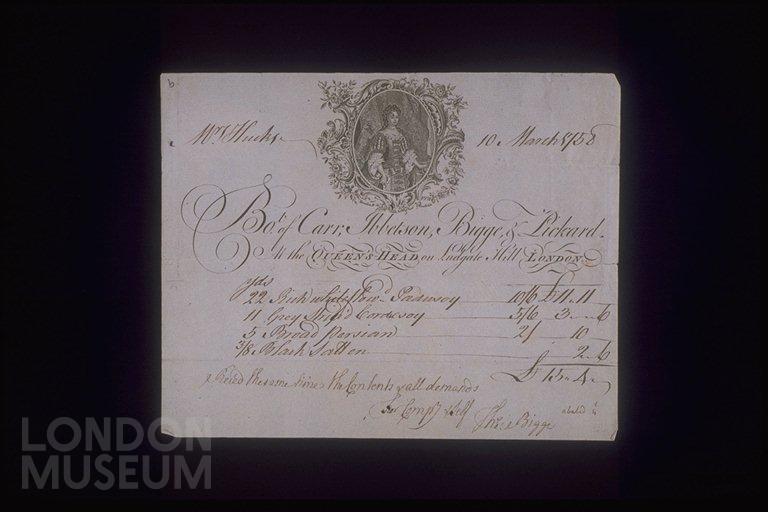 6
Mrs Hucks
10 March 1758
Bot. of Carr, Ibbetson, Bigge, & Pickard.
At the QUEEN'S HEAD on Ludgate Hill LONDON.
yds
22 Rich white flowd Padusoy 10/6 £ 11 .. 11
11 Grey Corded soy 5/6 3 .. .. 6
5 Broad Persian 2/ 10
3/8 Black Satten 2 .. 6
£ 15 .. 4 ..
Reced the same time the Contents & all demands
For Compy & Self Thos. Bigge
LONDON
MUSEUM